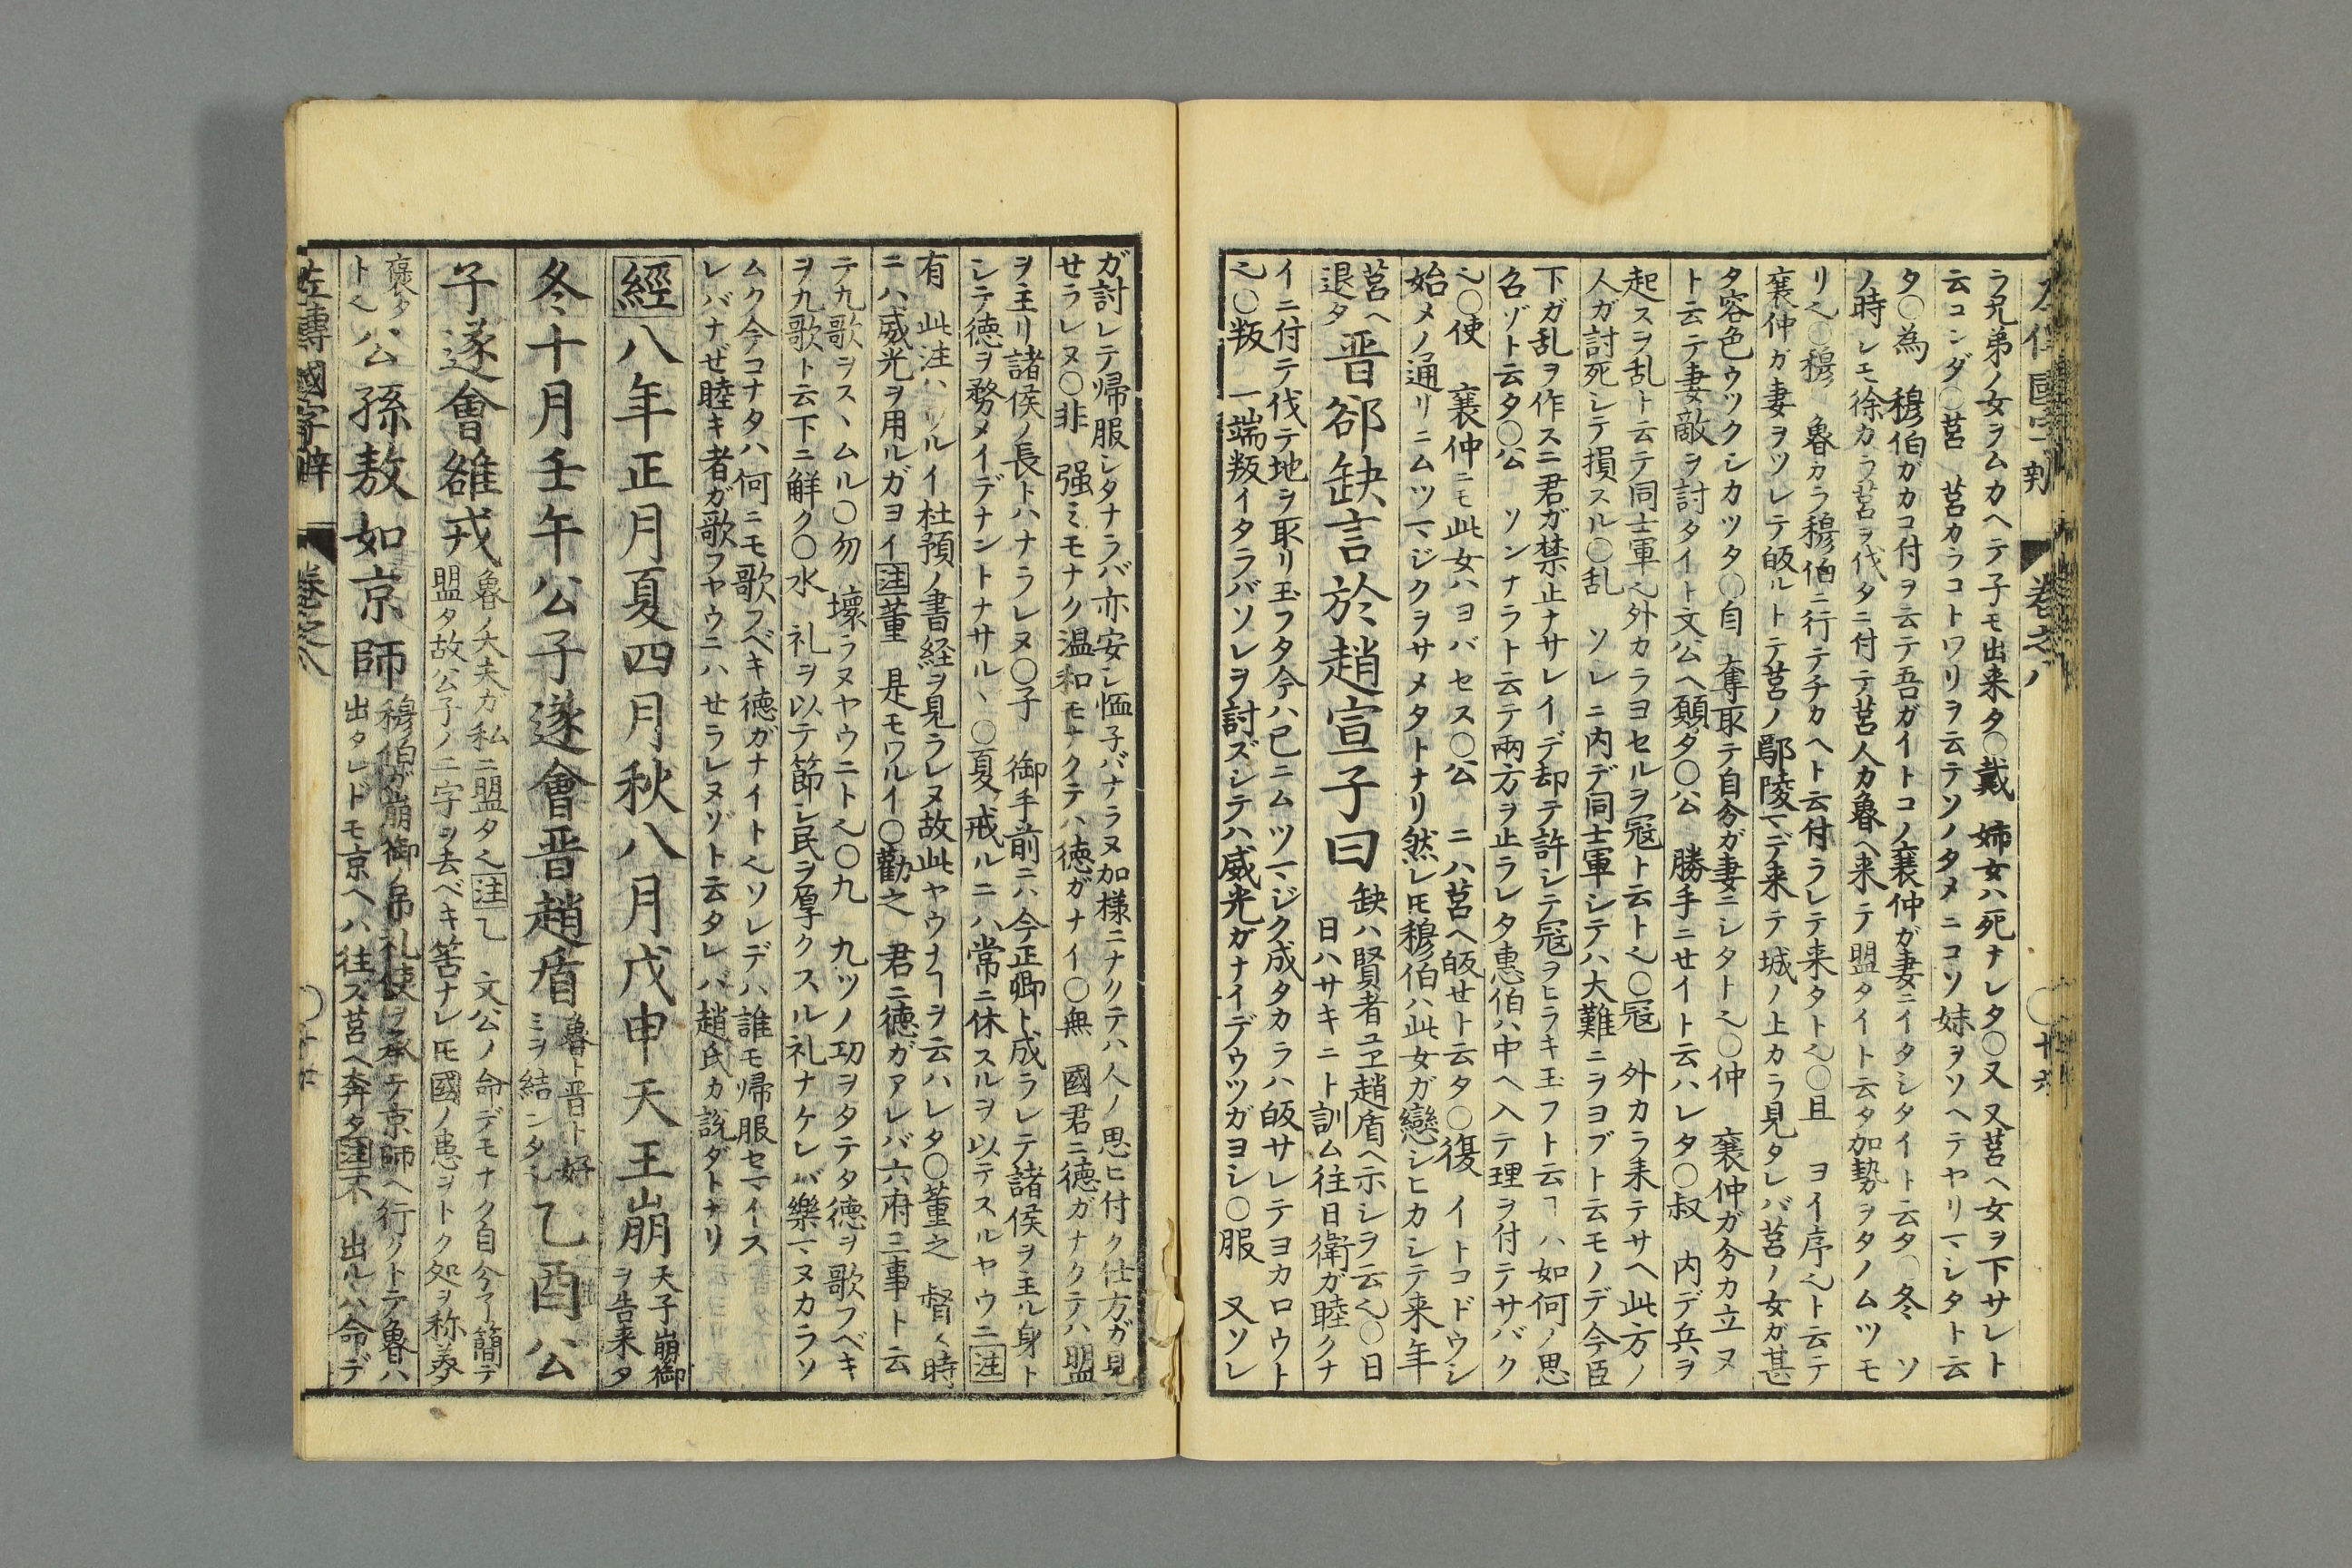 ラ兄弟ノ女ヲムカヘテ子モ出来タ〇戴 姉女ハ死ナレタ〇又 又莒ヘ女ヲ下サレト
云コンダ〇莒 莒カラコトワリヲ云テソノタメニコソ妹ヲソヘテヤリマシタト云
タ〇為 穆伯ガカコ付ヲ云テ吾ガイトコノ襄仲ガ妻ニイタシタイト云タ〇冬 ソ
ノ時レモ徐カラ莒ヲ伐タニ付テ莒人カ魯ヘ来テ盟タイト云タ加勢ヲタノムツモ
リ〇穆 魯カラ穆伯ニ行テチカヘト云付ラレテ来タト〇且 ヨイ序ト云テ
襄仲ガ妻ヲツレテ皈ルトテ莒ノ鄢陵マデ来テ城ノ上カラ見タレバ莒ノ女ガ甚
タ容色ウツクシカツタ〇自 奪取テ自分ガ妻ニシタト〇仲 襄仲ガ分カ立ヌ
ト云テ妻敵ヲ討タイト文公ヘ願タ〇公 勝手ニセイト云ハレタ〇叔 内デ兵ヲ
起スヲ乱ト云テ同士軍外カラヨセルヲ寇ト云ト〇寇 外カラ来テサヘ此方ノ
人ガ討死シテ損スル〇乱 ソレニ内デ同士軍シテハ大難ニヲヨブト云モノデ今臣
下ガ乱ヲ作スニ君ガ禁止ナサレイデ却テ許シテ寇ヲヒラキ玉フト云ヿハ如何ノ思
召ゾト云タ〇公 ソンナラト云テ兩方ヲ止ラレタ惠伯ハ中ヘ入テ理ヲ付テサバク
〇使 襄仲ニモ此女ハヨバセス〇公 ニハ莒ヘ皈セト云タ〇復 イトコドウシ
始メノ通リニムツマジクヲサメタトナリ然レモ穆伯ハ此女ガ戀シヒカシテ来年
莒ヘ
退タ
晋郤缺言於趙宣子曰
缺ハ賢者ユヱ趙盾ヘ示シヲ云〇日
日ハサキニト訓ム往日衛ガ睦クナ
イニ付テ伐テ地ヲ取リ玉フタ今ハ已ニムツマジク成タカラハ皈サレテヨカロウト
〇叛 一端叛イタラバソレヲ討ズシテハ威光ガナイデウツガヨシ〇服 又ソレ
ガ討レテ帰服シタナラバ亦安シ恤子バナラヌ加様ニナクテハ人ノ思ヒ付ク仕方ガ見
セラレヌ〇非 强ミモナク温和モナクテハ徳ガナイ〇無 國君ニ徳ガナクテハ盟
ヲ主リ諸侯ノ長トハナラレヌ〇子 御手前ニハ今正卿ト成ラレテ諸侯ヲ主ル身ト
シテ徳ヲ務メイデナントナサルヽ〇夏 戒ルニハ常ニ休スルヲ以テスルヤウニ注
有 此注ハワルイ杜預ノ書経ヲ見ラレヌ故此ヤウナヿヲ云ハレタ〇董之 督時
ニハ威光ヲ用ルガヨイ注董 是モワルイ〇勸之 君ニ徳ガアレバ六府三事ト云
テ九歌ヲスヽムル〇勿 壞ラヌヤウニト〇九 九ツノ功ヲタテタ徳ヲ歌フベキ
ヲ九歌ト云下ニ觧ク〇水 礼ヲ以テ節シ民ヲ厚クスル礼ナケレバ樂マヌカラソ
ムク今コナタハ何ニモ歌フベキ徳ガナイトソレデハ誰モ帰服セマイス
レバナゼ睦キ者ガ歌フヤウニハセラレヌゾト云タレバ趙氏カ説ダトナリ
經八年正月夏四月秋八月戊申天王崩
天子崩御
ヲ告来タ
冬十月壬午公子遂會晋趙盾
魯ト晋ト好
ミヲ結ンタ
乙酉公
子遂會雒戎
魯ノ大夫カ私ニ盟タ注乙 文公ノ命デモナク自分了簡テ
盟タ故公子ノ二字ヲ去ベキ筈ナレモ國ノ患ヲトク処ヲ称美
褒タ
ト
公孫敖如京師
穆伯ガ崩御ノ吊礼使ヲ承テ京師ヘ行クトテ魯ハ
出タレドモ京ヘハ往ズ莒ヘ奔タ注不 出ルハ命デ
左傳國字辨 卷之八